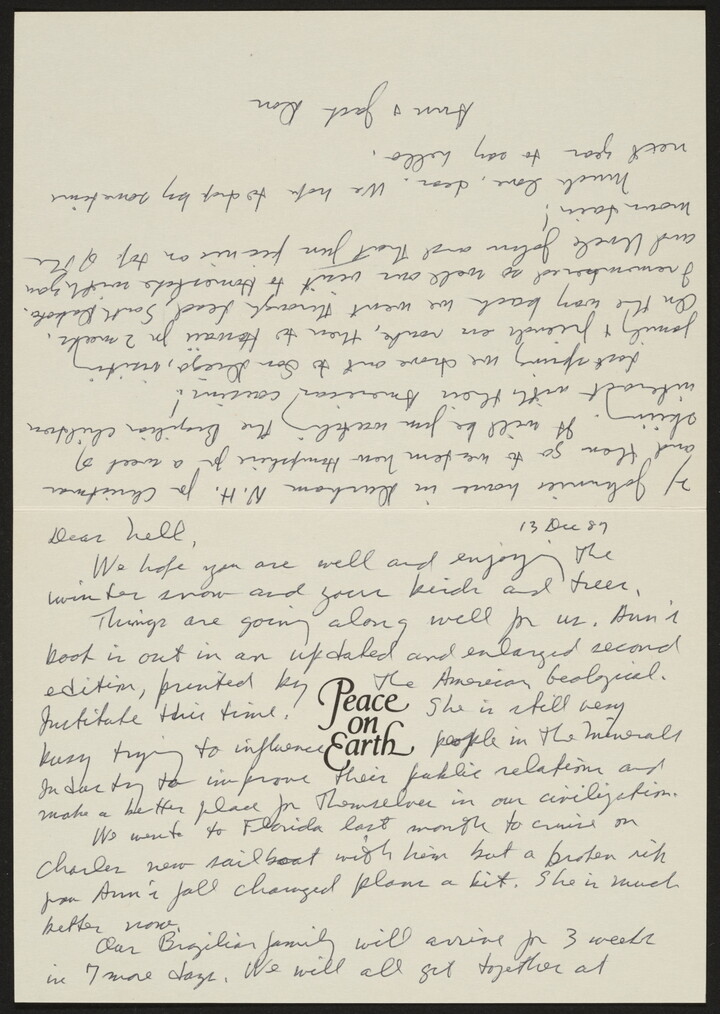 Dear Nell,
13 Dec 87
We hope you are well and enjoying the
winter snow and your birds and trees.
Things are going along well for us. Ann's
book is out in an updated and enlarged second
edition, printed by the American Geological
Institute this time. She is still very
busy trying to influence people in the Minerals
Industry to improve their public relations and
make a better place for themselves in our civilization.
We went to Florida last month to cruise on
Charles new sailboat with him but a broken rib
from Ann's fall changed plans a bit. She is much
better now.
Our Brazilian family will arrive for 3 weeks
in 7 more days. We will all get together at
Peace
on
Earth
2/ Johnnie's house in Durham N.H. for Christmas
and then go to western New Hampshire for a week of
skiing. It will be fun watching the Brazilian children
interact with their American cousins!
Last spring we drove out to San Diego, visiting
family & friends en route, then to Hawaii for 2 weeks.
On the way back we went through Lead, South Dakota.
I remembered so well our visit to Homestake with you
and Uncle John and that fun picnic on top of the
mountain!
Much love, dear. We hope to drop by sometime
next year to say hello.
Ann & Jack Dorr